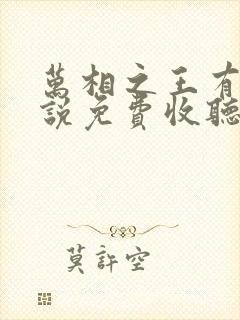 萬相之王有
說免費收聽
莫許空